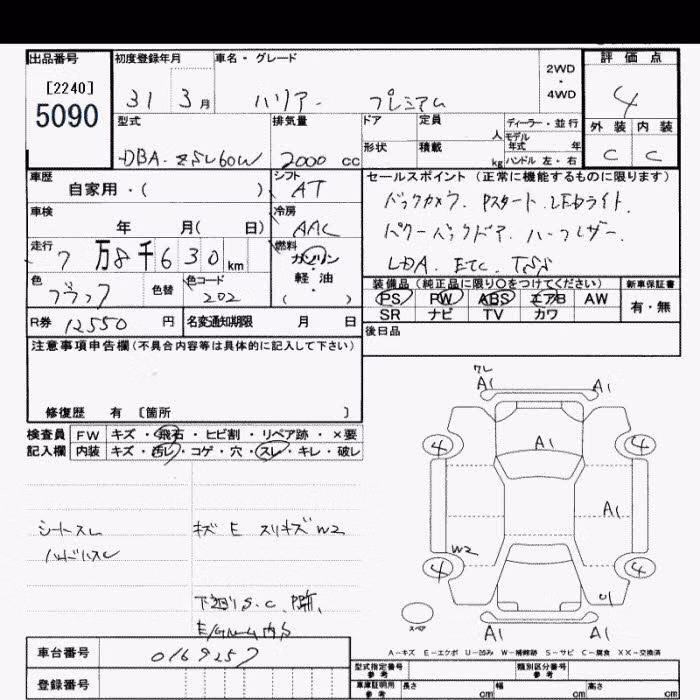 出品番号 初度登録年月 車名・グレード 2WD・4WD 評価点
[2240]
5090
31 3月 ハリアー プレミアム 4
型式 排気量 ドア 定員 人 ディーラー・並行 外装 内装
形状 積載 kg モデル年式 年 ハンドル 左・右
DBA- 2000 cc C C
車歴 自家用・( ) シフト AT セールスポイント (正常に機能するものに限ります)
車検 年 月( 日) 冷房 AAC バックカメラ. Pスタート. LEDライト.
走行 7万8千630km 燃料 ガソリン・軽油・( ) パワーバックドア. ハーフレザー.
LDA. ETC. TSS
色 ブラック 色替 色コード 202 装備品 (純正品に限り〇をつけてください) 新車保証書
PS PW ABS エアB AW 有・無
SR ナビ TV カワ
R券 12550 円 名変通知期限 月 日 後日品
注意事項申告欄 (不具合内容等は具体的に記入して下さい)
修復歴 有 〔箇所 〕
検査員 FW キズ・飛石・ヒビ割・リペア跡・×要
記入欄 内装 キズ・汚レ・コゲ・穴・スレ・キレ・破レ
シートスレ キズ E スリキズW2
ハンドルスレ
下廻りS.C.
A1 A1
A1
4 4
A1
W2
4 4
A1 A1
スペア
A-キズ E-エクボ U-凹み W-補修跡 S-サビ C-腐食 XX-交換済
車台番号 0169257 型式指定番号 参考 類別区分番号 参考
登録番号 車庫証明用 参考 長さ cm 幅 cm 高さ cm